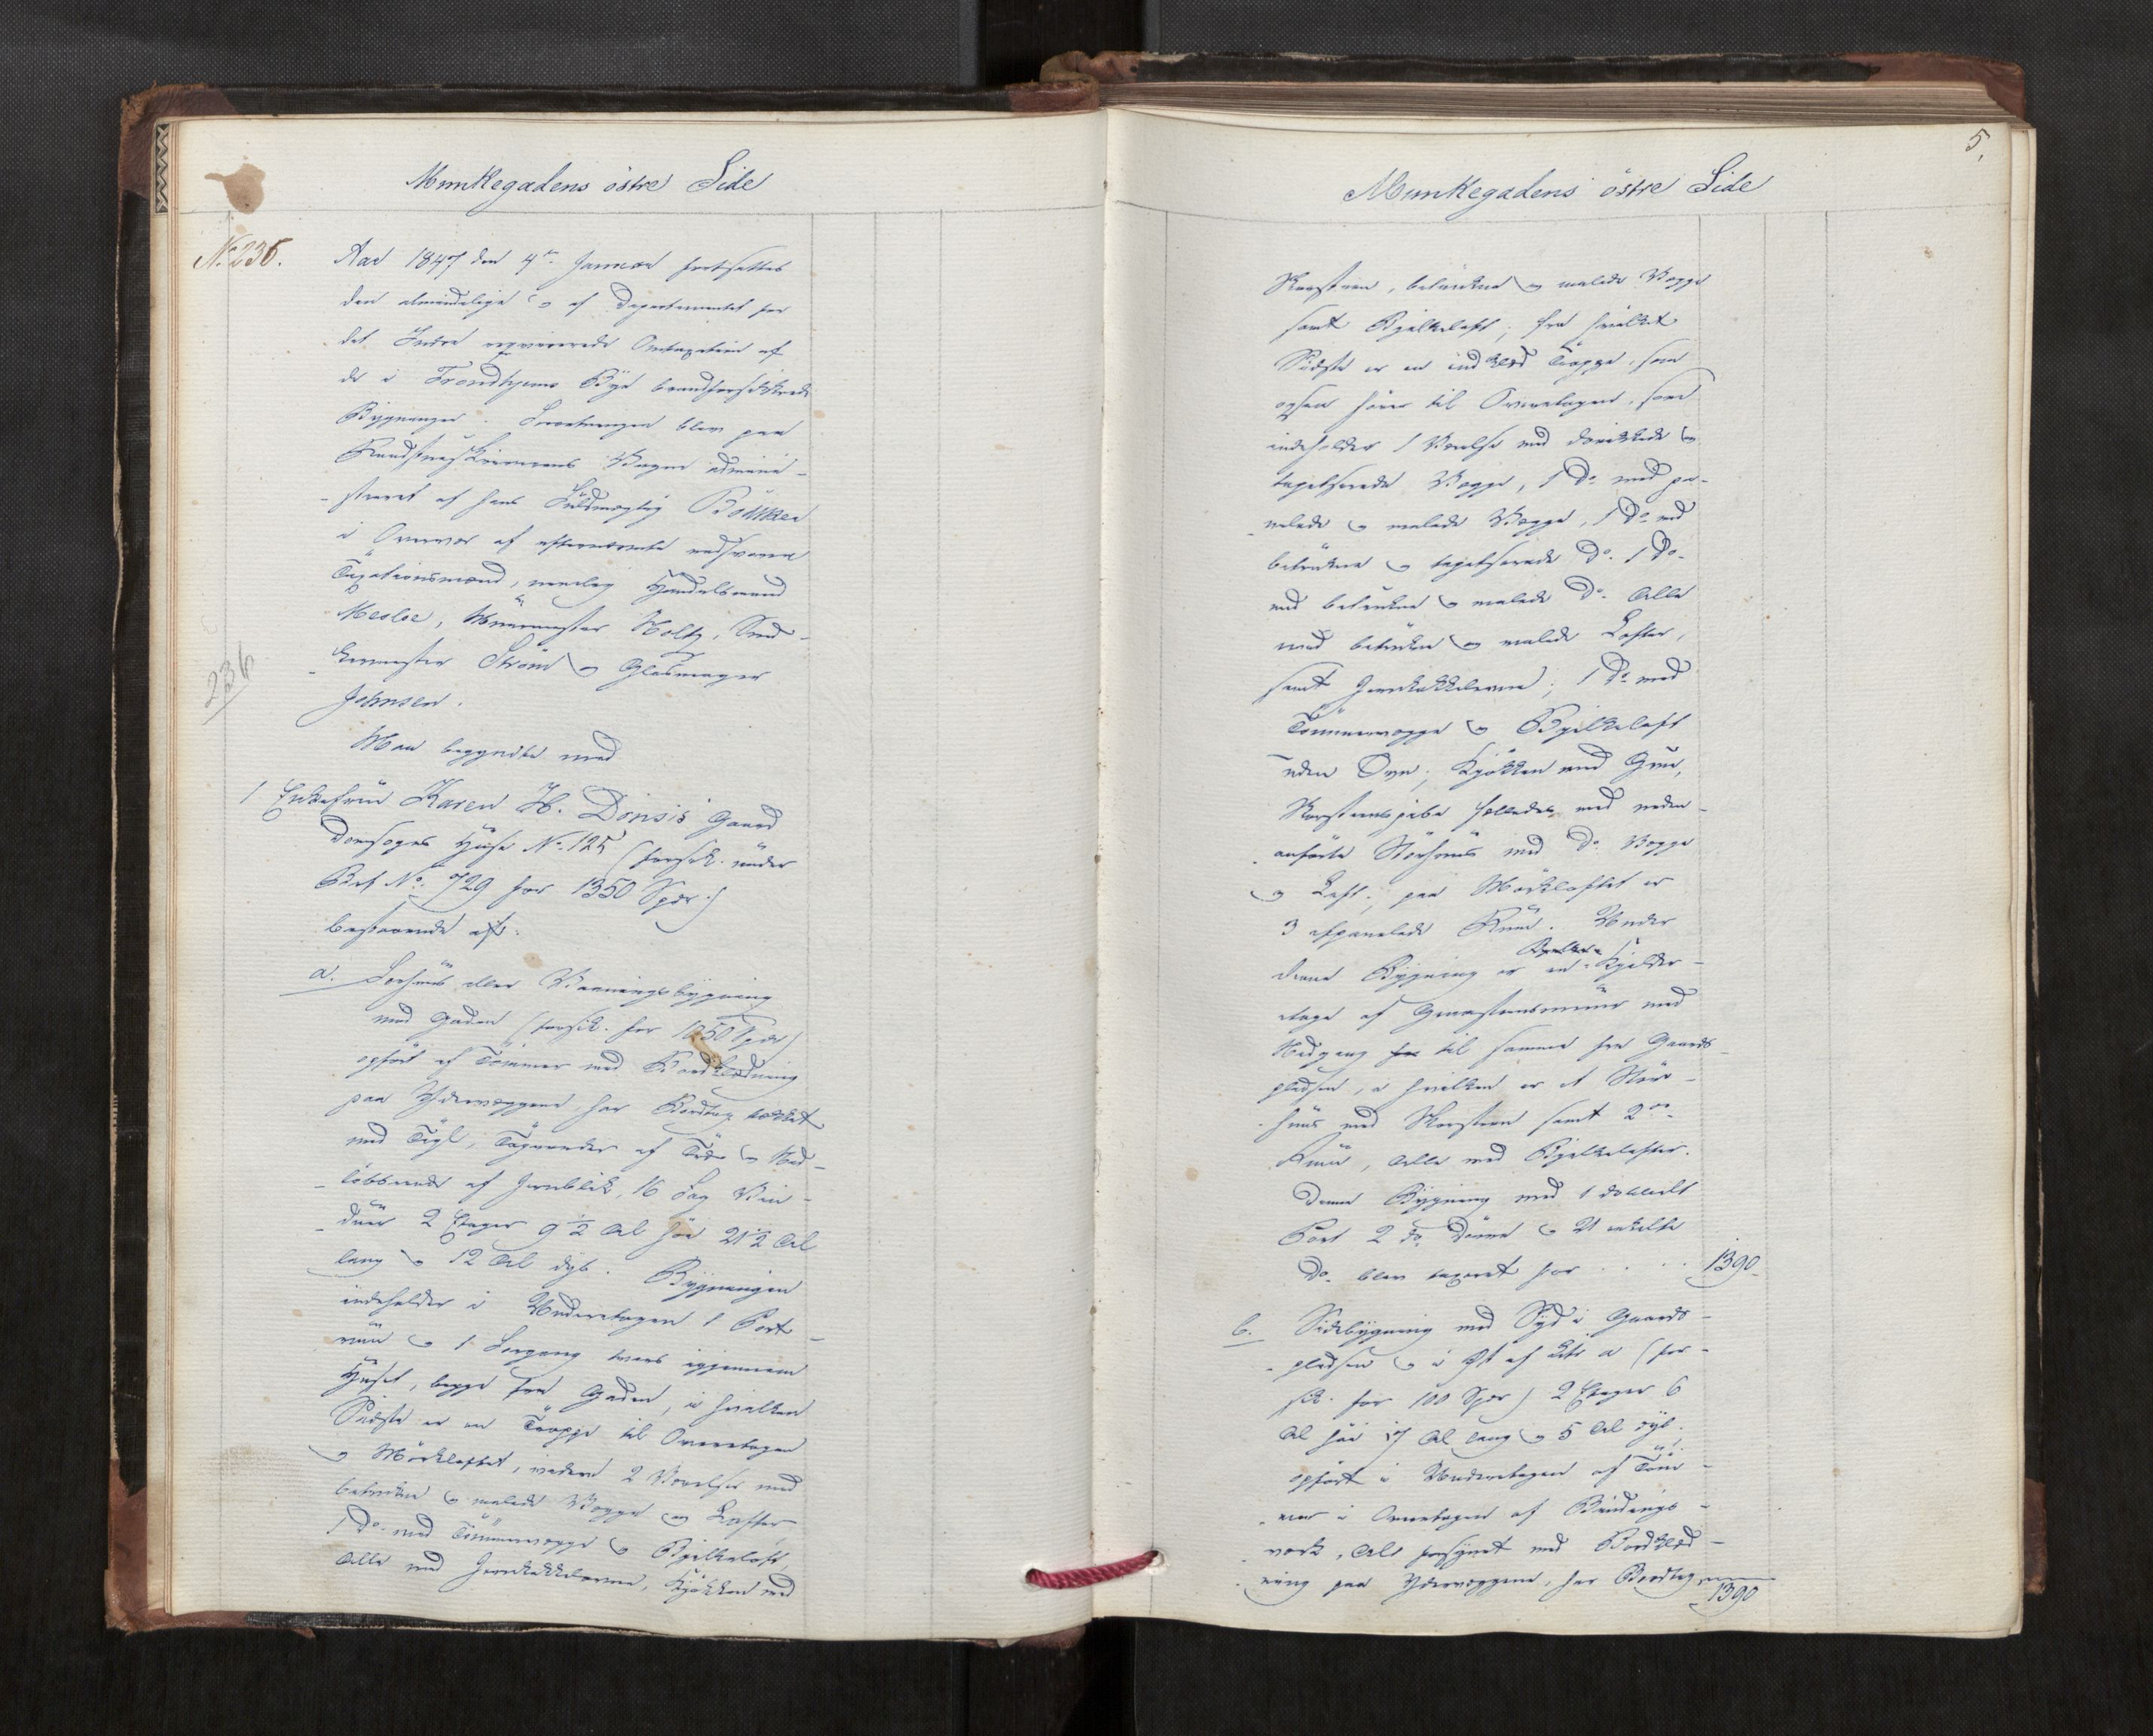 Munkegadens östre Side
No 236.
Aar 1847 den 4de Januar fortsattes
den almindelige og af Departementet for
det Indre approberede Omtaxation af
de i Trondhjems Bye brandforsikkrede
Bygninger. Forretningen blev paa
Vegne admini-
-streret af hans Fuldmægtig Bödtker
i Overvær af efternævnte edsvorne
Taxationsmænd, nemlig Handelsmand
Mesloe, Muurmester Holtz, Sned-
-kermester Ström og Glasmager
Johnsen.
236
Man begyndte med
1 Enkefrue Karen H. Dönsis Gaard
Domsogns Huse No. 125 (forsik. under
Bef No. 729 for 1350 Spdr.)
bestaaende af:
a. Forhuus eller Vaaningsbygning
mod Gaden (forsik. for 1050 Spdr)
opfört af Tömmer med Bordklædning
paa Ydervæggene, har Bordtag tækket
med Tegl, Tagrender af Træ og Ned-
-löbsrende af Jernblik, 16 Fag Vin-
-duer 2 Etager 9 1/2 Al höi 21 1/2 Al
lang og 12 Al dyb. Bygningen
indeholder i Underetagen 1 Port-
rum og 1 Forgang tvers igjennem
Huset, begge fra Gaden, i hvilken
Sidste er en Trappe til Overetagen
og Mörkloftet, videre 2 Værelser med
betrukne og malede Vægge og Lofter,
1 Do. med Tömmervægge og Bjelkeloft,
Alle med Jernkakkelovne, Kjökken med
5.
Munkegadens östre Side
Skorsteen, betrukne og malede Vægge
samt Bjelkeloft; fra hvilket
Sidste er en indklæd Trappe, som
ogsaa förer til Overetagen, som
indeholder 1 Værelse med og
tapetserede Vægge, 1 Do. med pa-
-nelede og malede Vægge, 1 Do. med
betrukne og tapetserede Do. 1 Do.
med betrukne og malede Do. Alle
med betrukne og malede Lofter,
samt Jernkakkelovne; 1 Do. med
Tömmervægge og Bjelkeloft
uden Ovn; Kjökken med Gruu,
Skorsteenspibe fælleds med neden-
-anförte Störhuus med Do. Vægge
og Loft; paa Mörkloftet er
3 afpanelede Rum. Under
denne Bygning er en Kjelder-
etage af Graasteensmuur med
Nedgang til samme fra Gaards-
pladsen, i hvilken er et Stör-
-huus med Skorsteen samt 2de
Rum, Alle med Bjelkelofter.
Denne Bygning med 1 dobbelt
Port 2 do. Dörre og 21 enkelte
Do. blev taxeret for . . . . 1390.
b. Sidebygning mod Syd i Gaards-
-pladsen og i Öst af Litr a (for-
sik. for 100 Spdr) 2 Etager 6
Al höi 17 Al lang og 5 Al dyb,
opfört i Underetagen af Töm-
-mer i Overetagen af Bindings-
-værk, Alt forsynet med Bordklæd-
-ning paa Ydervæggene, har Bordtag
1390